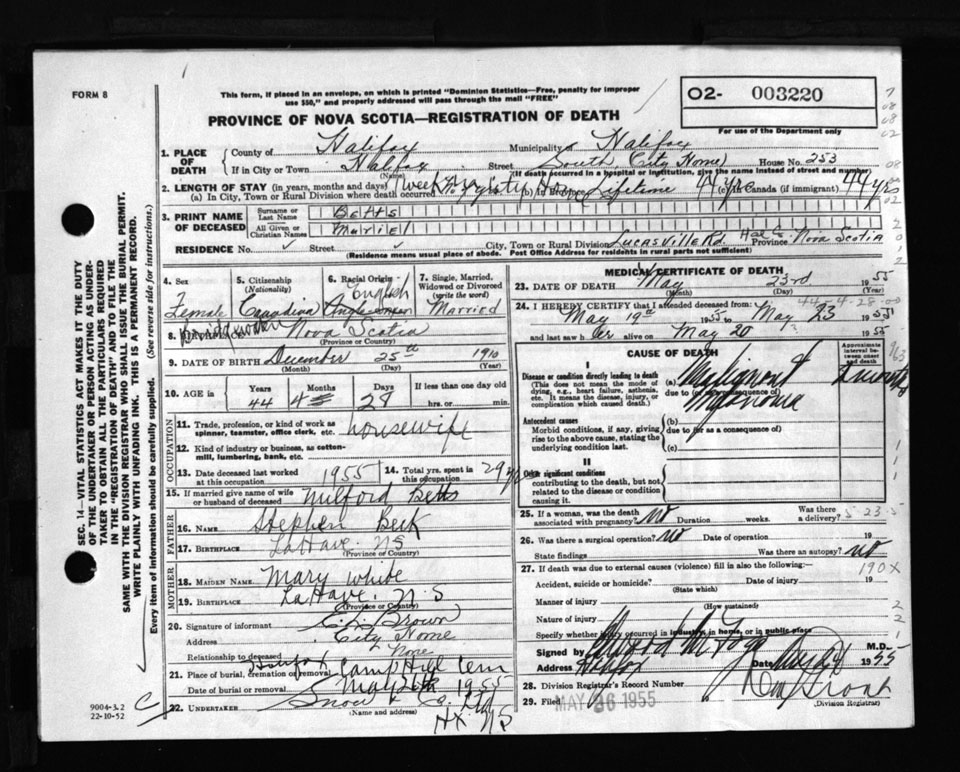 FORM 8
This form, if placed in an envelope, on which is printed "Dominion Statistics—Free, penalty for improper
use $50," and properly addressed will pass through the mail "FREE"
PROVINCE OF NOVA SCOTIA—REGISTRATION OF DEATH
02- 003220
For use of the Department only
1. PLACE OF DEATH
County of Halifax Municipality of Halifax
If in City or Town Halifax Street South (City Home) House No. 253
(Name) (If death occurred in a hospital or institution, give its name instead of street and number)
2. LENGTH OF STAY (in years, months and days)
(a) In City, Town or Rural Division where death occurred 1 week Lifetime 44 yrs (c) in Canada (if immigrant) 44 yrs
3. PRINT NAME OF DECEASED
Surname or Last Name Betts
All Given or Christian Names Muriel
RESIDENCE No. Street City, Town or Rural Division Lucasville Rd. Hal Co. Province Nova Scotia
(Residence means usual place of abode. Post Office Address for residents in rural parts not sufficient)
4. Sex
Female
5. Citizenship
(Nationality)
Canadian
6. Racial Origin
English
7. Single, Married,
Widowed or Divorced
(write the word)
Married
8. BIRTHPLACE Nova Scotia
(Province or Country)
9. DATE OF BIRTH December 25th 1910
(Month) (Day) (Year)
10. AGE in
Years Months Days If less than one day old
44 4 28 hrs. or min.
OCCUPATION
11. Trade, profession, or kind of work as
spinner, teamster, office clerk, etc. housewife
12. Kind of industry or business, as cotton-
mill, lumbering, bank, etc.
13. Date deceased last worked
at this occupation 1955
14. Total yrs. spent in
this occupation 29 yrs
15. If married give name of wife
or husband of deceased Milford Betts
FATHER
16. NAME Stephen Beck
17. BIRTHPLACE LaHave. NS
(Province or Country)
MOTHER
18. MAIDEN NAME Mary White
19. BIRTHPLACE LaHave. N.S
(Province or Country)
20. Signature of informant Brown
Address City Home
Relationship to deceased None
21. Place of burial, cremation or removal Halifax Camp Hill Cem
Date of burial or removal May 26th 1955
22. UNDERTAKER Snow & Co. Ltd
(Name and address)
Hx NS
MEDICAL CERTIFICATE OF DEATH
23. DATE OF DEATH May 23rd 1955
(Month) (Day) (Year)
44-4-28-00
24. I HEREBY CERTIFY that I attended deceased from
May 19th 1955 to May 23 1955
and last saw her alive on May 20 1955
CAUSE OF DEATH
Approximate
interval be-
tween onset
and death
I
Disease or condition directly leading to death
(This does not mean the mode of
dying, e.g., heart failure, asthenia,
etc. It means the disease, injury, or
complication which caused death.)
(a) Malignant
due to (or as a consequence of)
Melanoma
Antecedent causes
Morbid conditions, if any, giving
rise to the above cause, stating the
underlying condition last.
(b)
due to (or as a consequence of)
(c)
II
Other significant conditions
contributing to the death, but not
related to the disease or condition
causing it.
25. If a woman, was the death
associated with pregnancy? No Duration weeks. Was there
a delivery?
5-23-5
26. Was there a surgical operation? No Date of operation 19
State findings Was there an autopsy? No
27. If death was due to external causes (violence) fill in also the following:
190X
Accident, suicide or homicide? Date of injury 19
(State which)
Manner of injury
(How sustained)
Nature of injury
Specify whether injury occurred in industry, in home, or in public place
Signed by M.D.
Address Halifax Date May 24 1955
28. Division Registrar's Record Number
29. Filed MAY 26 1955
(Division Registrar)
SEC. 14—VITAL STATISTICS ACT MAKES IT THE DUTY
OF THE UNDERTAKER OR PERSON ACTING AS UNDER-
TAKER TO OBTAIN ALL THE PARTICULARS REQUIRED
IN THE "REGISTRATION OF DEATH" AND TO FILE THE
SAME WITH THE DIVISION REGISTRAR WHO SHALL ISSUE THE BURIAL PERMIT.
WRITE PLAINLY WITH UNFADING INK. THIS IS A PERMANENT RECORD.
Every item of information should be carefully supplied. (See reverse side for instructions.)
9004-3.2
22-10-52
C